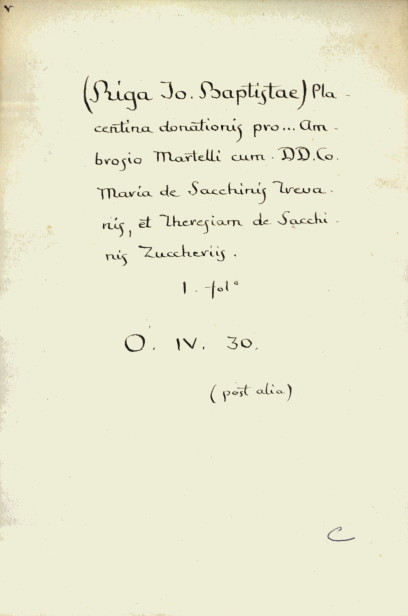 (Riga Jo. Baptistae) Pla-
centina donationis pro... Am-
brosio Martelli cum. DD. Co.
Maria de Sacchinis Treva-
nis, et Theresiam de Sacchi-
nis Zuccheriis.
1. fol°
O. IV. 30.
(post alia)
C